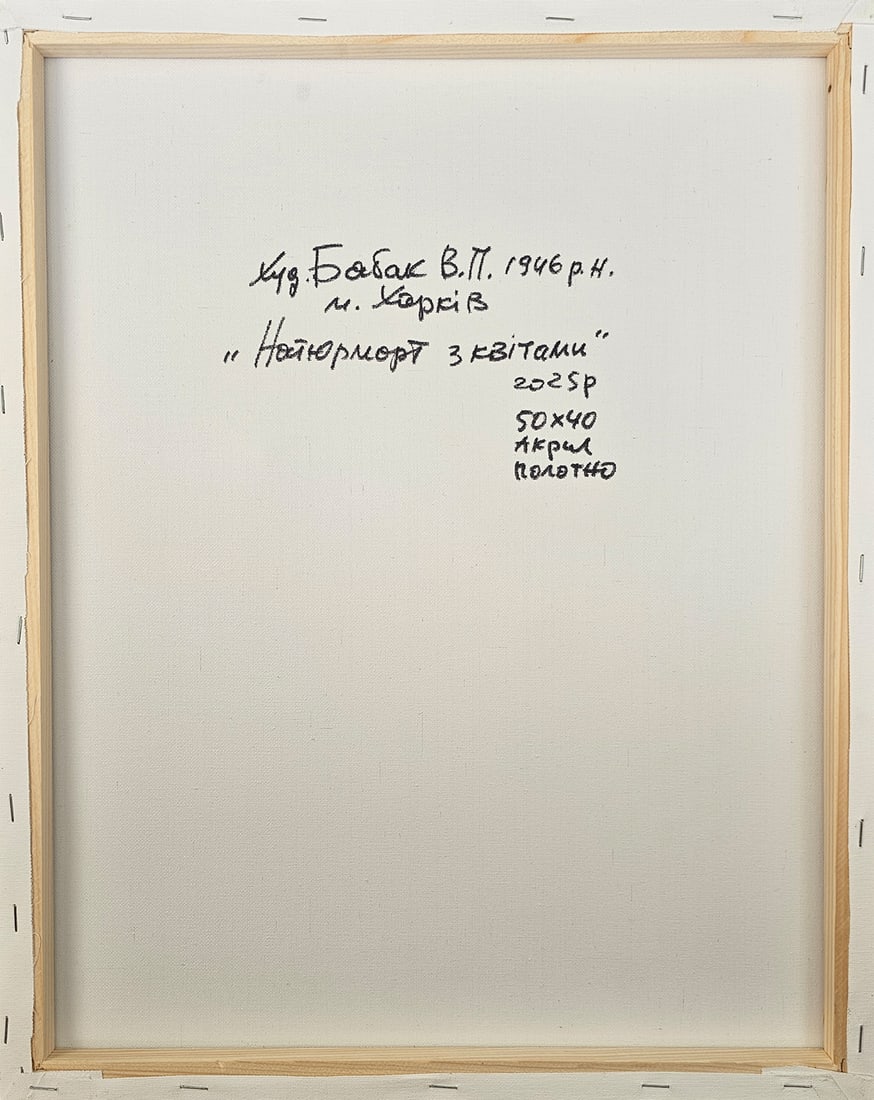 Худ. Бабак В.П. 1946 р.н.
м. Харків
"Натюрморт з квітами"
2025р
50х40
Акрил
полотно